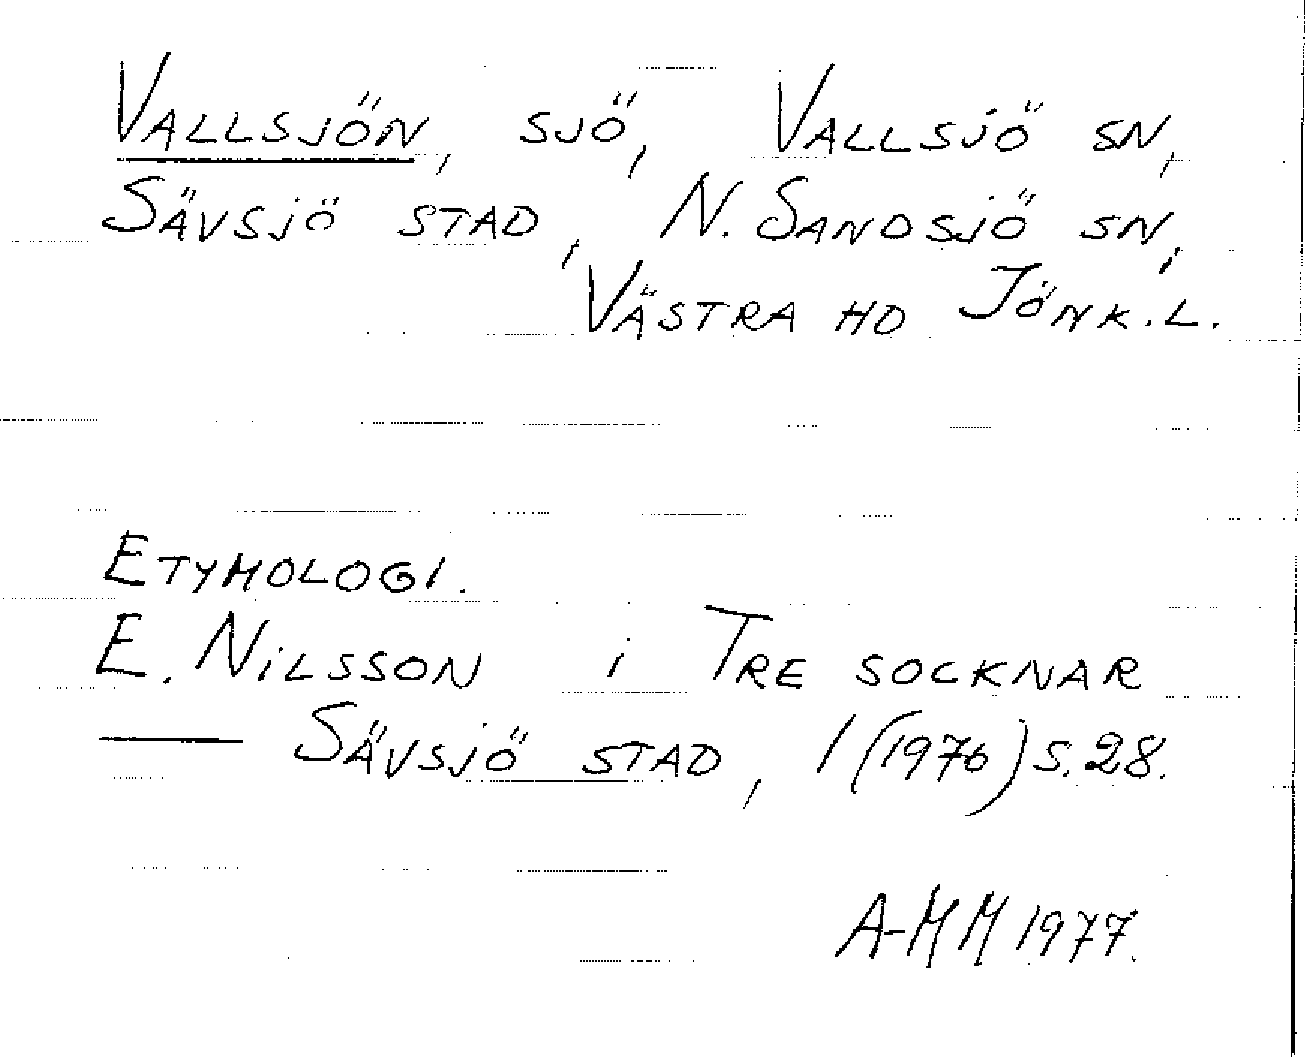 Vallsjön, sjö, Vallsjö sn,
Sävsjö stad, N. Sandsjö sn,
Västra hd Jönk.l.
Etymologi.
E. Nilsson i Tre socknar
— Sävsjö stad, 1 (1976) s. 28.
A-MM 1977.